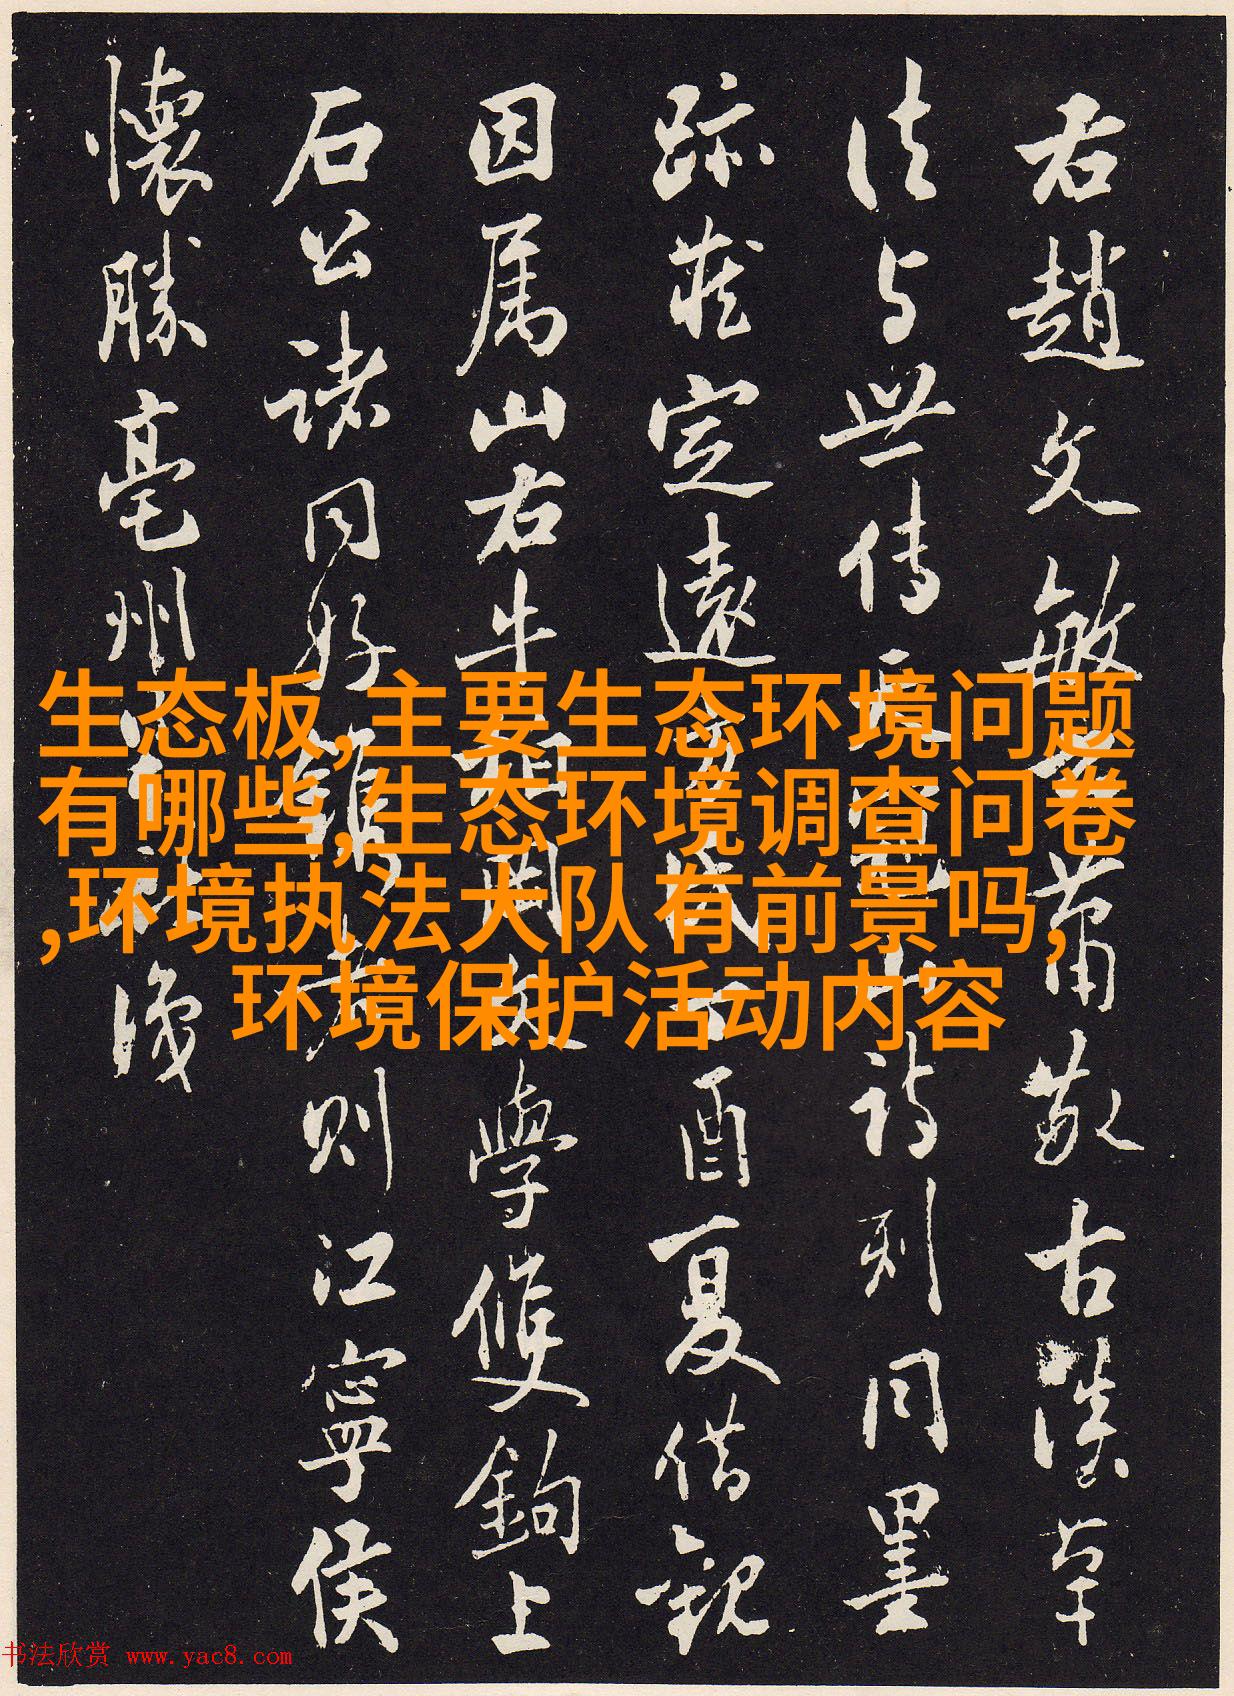 右趙文敏蕭散古澹草
法与世傳詩刻同墨
跡藏定遠方氏丁酉夏借觀
因属山右牛學僊鉤上
石公諸同好則江寧侯
懷勝亳州
生态板,主要生态环境问题
有哪些,生态环境调查问卷
,环境执法大队有前景吗,
环境保护活动内容
书法欣赏 www.yac8.com